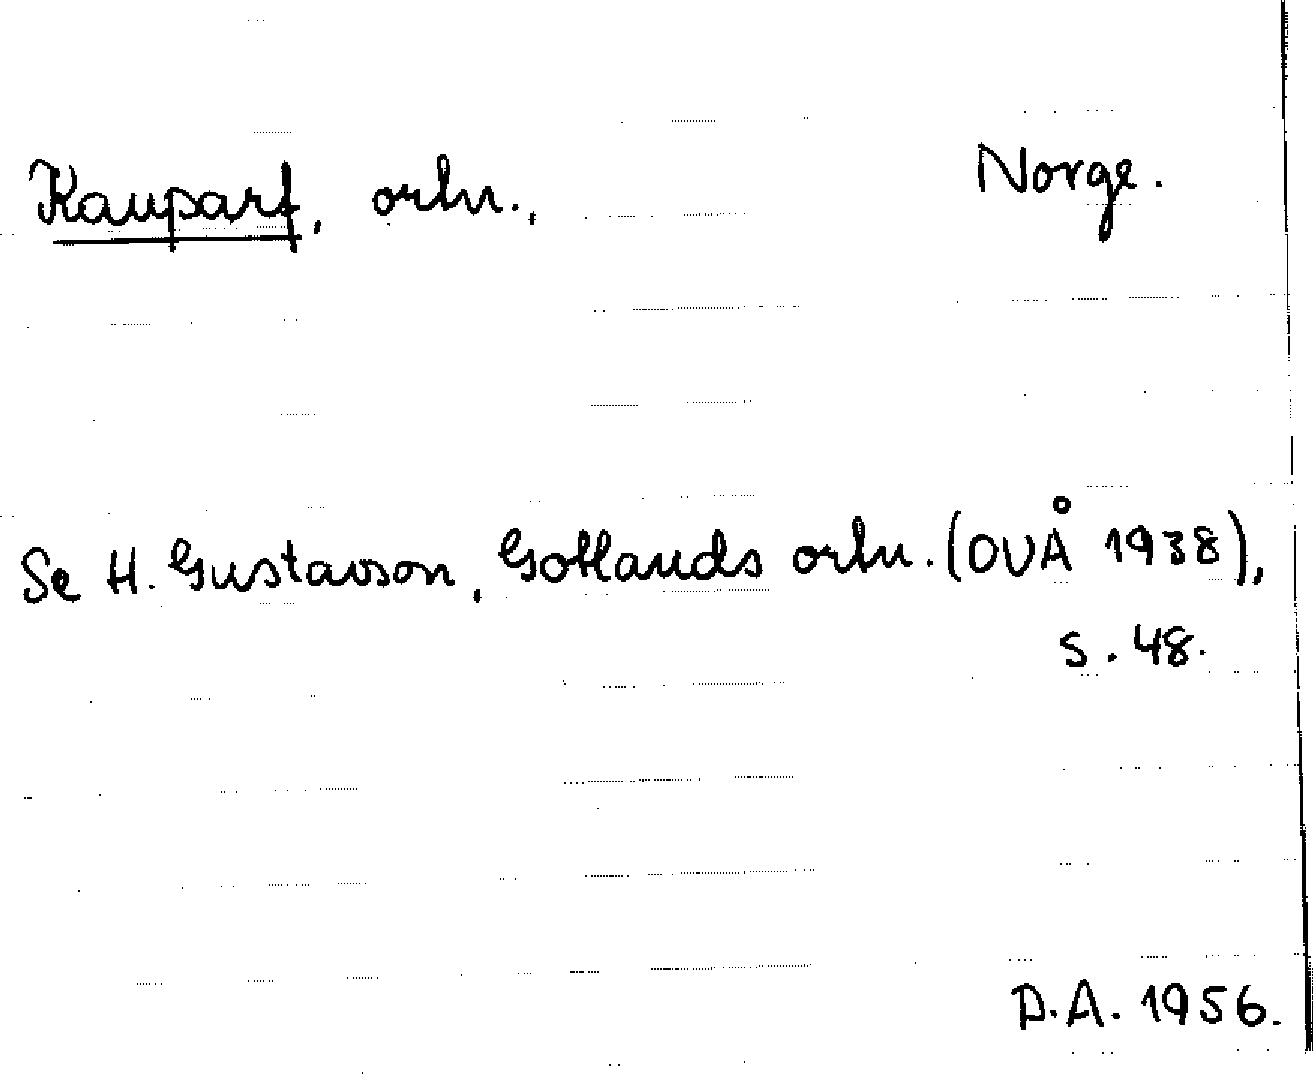 Kauparf, ortn., Norge.
Se H. Gustavson, Gotlands ortn. (OUÅ 1938),
s. 48.
D.A. 1956.